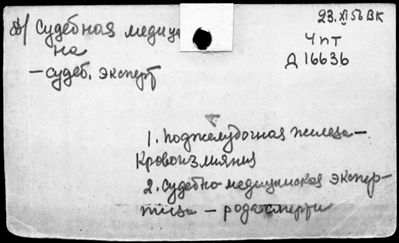 Д/ Судебная медици
на
— судеб. эксперт
23.XI 56 ВК
Чпт
Д 16636
1. Поджелудочная железа —
Кровоизлияния
2. Судебно-медицинская экспер-
тиза — рода смерти